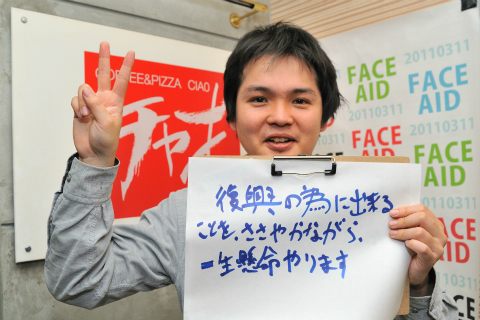 COFFEE&PIZZA CIAO
チャオ
復興の為に出来る
ことを、ささやかながら、
一生懸命やります
20110311
FACE
AID
20110311
FACE
AID
20110311
FACE
AID
FACE
AID
20110311
FACE
AID
20110311